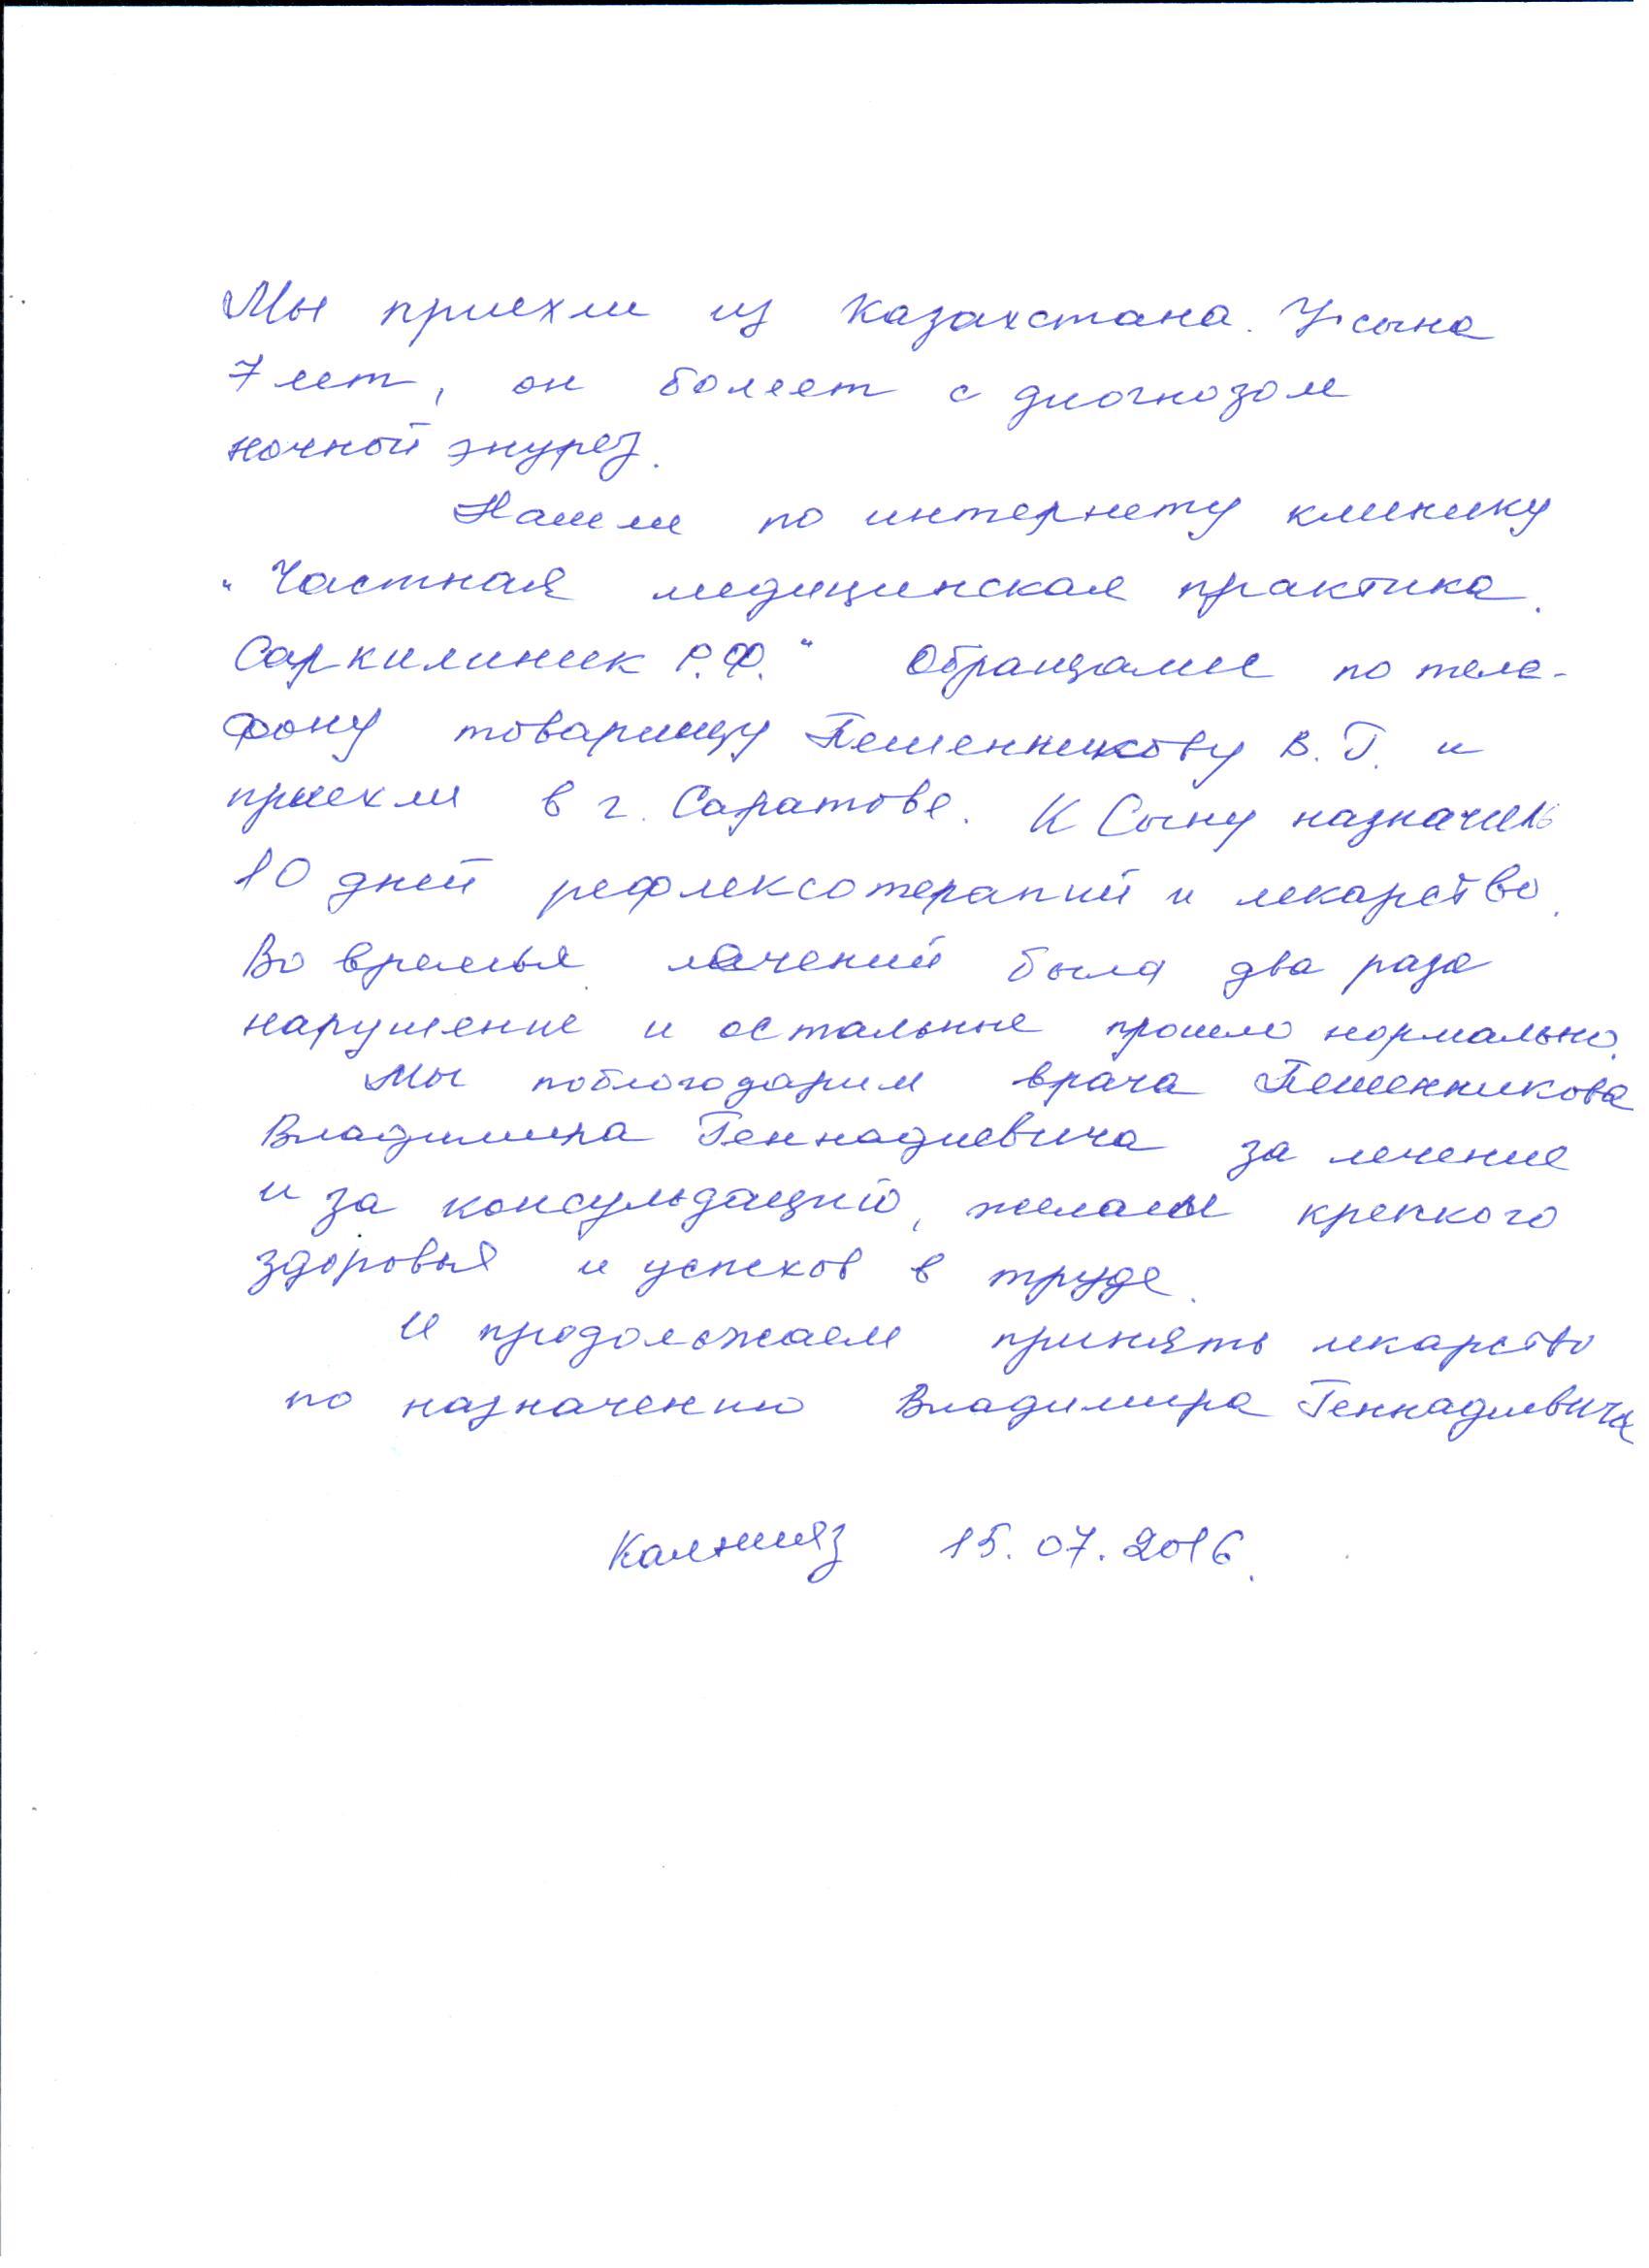 Мы приехли из Казахстана. У сына
7 лет, он болеет с диогнозом
ночной энурез.
Нашли по интернету клинику
"Частная медицинская практика.
Саркилиник Р.Ф." Обращалис по теле-
фону товарищу Пешенникову В. Г. и
приехли в г. Саратове. К Сыну назначил
10 дней рефлексотерапий и лекарство.
Во времья лечений была два раза
нарушение и остальные прошло нормально.
Мы поблогодарим врача Пешенникова
Владимира Геннадиевича за лечение
и за консульдацию, желаем крепкого
здоровья и успехов в труде.
И продольжаем принять лекарство
по назначению Владимира Геннадиевича
15.07.2016.